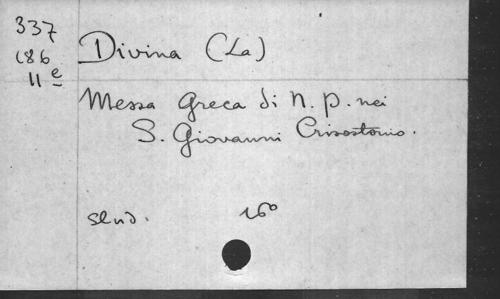 337
186
11e
Divina (La)
Messa Greca di N. P. nei
S. Giovanni Crisostomo.
slnd. 16º